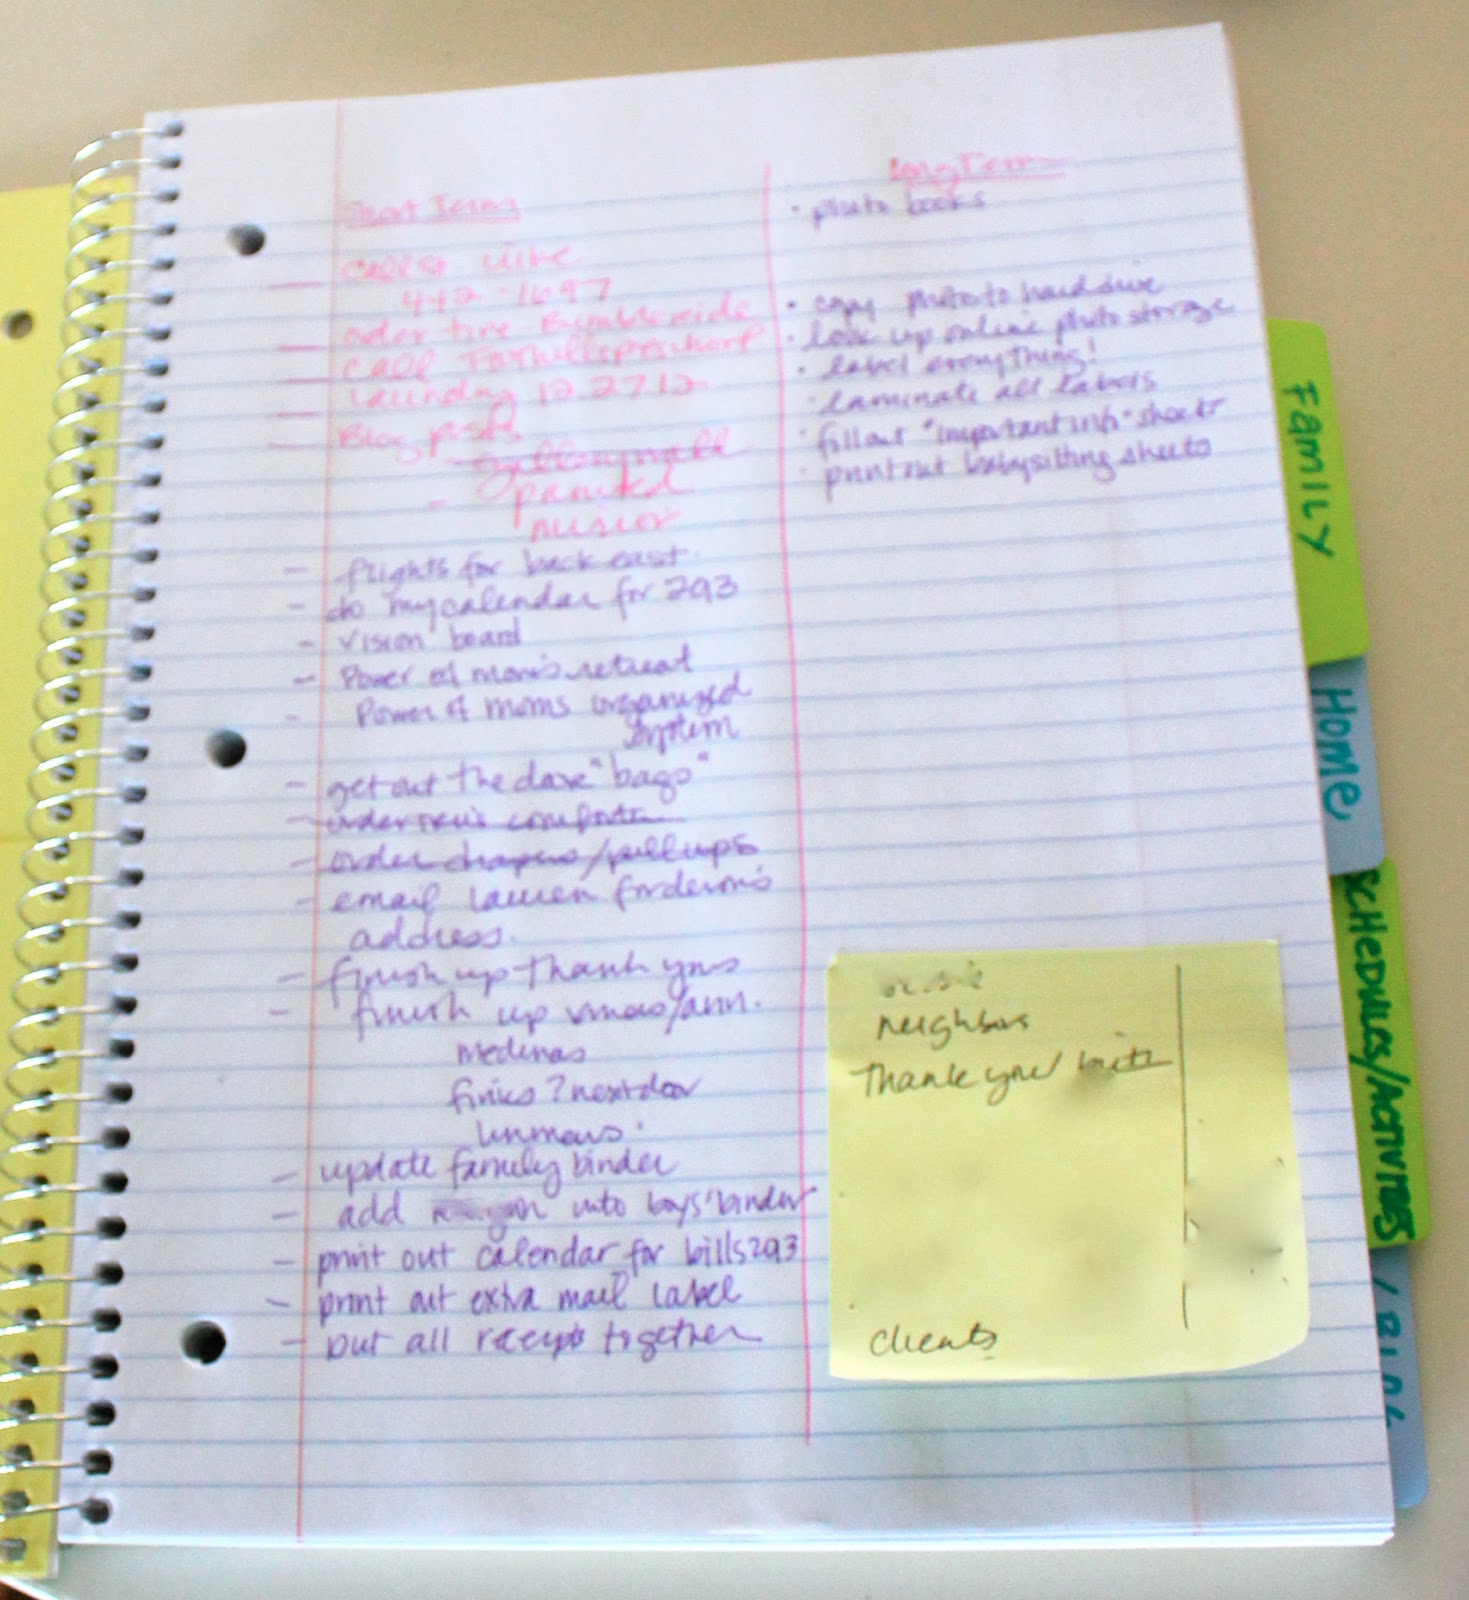 Short Term
442-1697
order tire Bumbleride
call
Laundry 12.27.12
Blog posts
painted
mirror
- flights for back east.
- do my calendar for 2013
- vision board
- Power of mom's retreat
- Power of moms organized
system
- get out the door "bags"
- order
- order diapers/pullups
- email Lauren for
address.
- finish up thank yous
- finish up xmas/ann.
medinas
finks? next door
- update family binder
- add into boys' binder
- print out calendar for bills 2013
- print out extra mail label
- put all receipts together
Long Term
• photo books
• copy photo to hard drive
• look up online photo storage
• label everything!
• laminate all labels
• fill out "important info" sheets
• print out babysitting sheets
neighbors
Thank you/
clients
FAMILY
HOME
SCHEDULES/ACTIVITIES